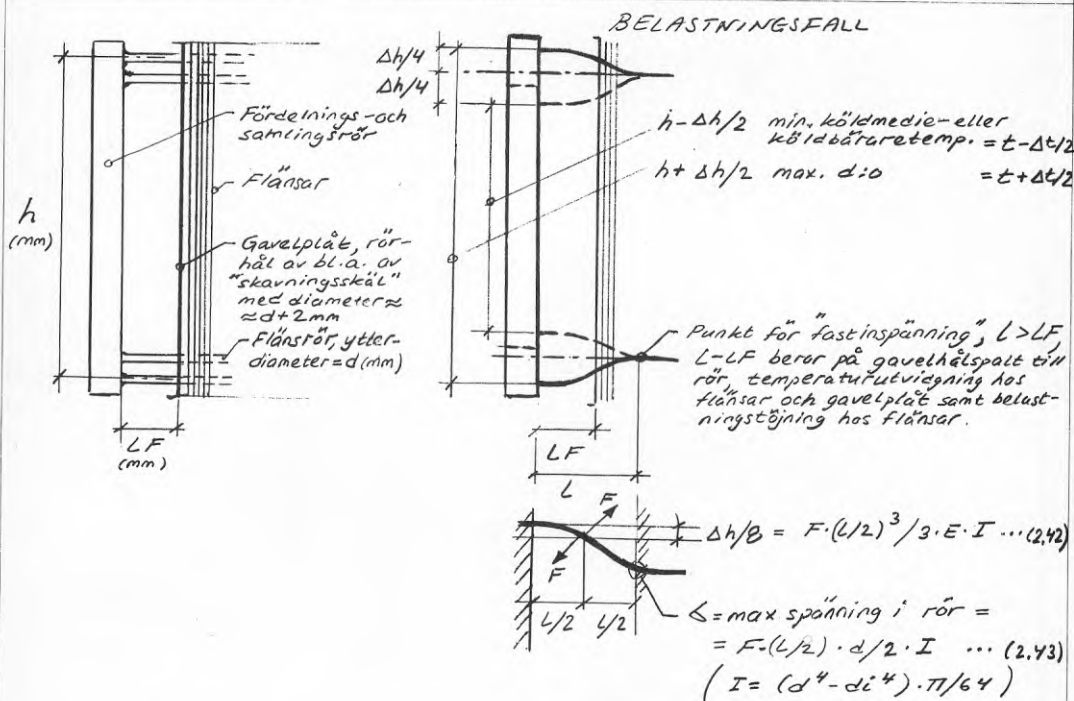 BELASTNINGSFALL
Δh/4
Δh/4
Fördelnings-och
samlingsrör
Flänsar
h
(mm)
Gavelplåt, rör-
hål av bl.a. av
"skavningsskäl"
med diameter ≈
≈ d+2mm
Flänsrör, ytter-
diameter = d (mm)
LF
(mm)
h-Δh/2 min. köldmedie-eller
köldbäraretemp. = t-Δt/2
h+Δh/2 max. d:o = t+Δt/2
Punkt för "fastinspänning", L>LF,
L-LF beror på gavelhålspalt till
rör, temperaturutvidgning hos
flänsar och gavelplåt samt belast-
ningstöjning hos flänsar.
LF
L
F
F
L/2 L/2
Δh/8 = F·(L/2)³/3·E·I ...(2.42)
σ = max spänning i rör =
= F·(L/2)·d/2·I ... (2.43)
(I = (d⁴-di⁴)·π/64)